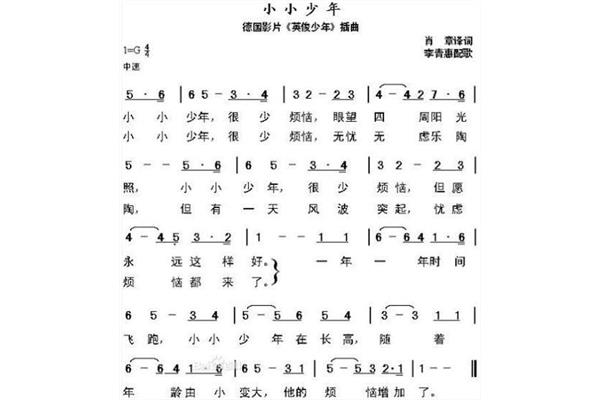 小小少年
德国影片《英俊少年》插曲
肖章译词
李青惠配歌
1=G 4/4
中速
5·6 | 1 6 5 - 3·4 | 3 2 - 2 3 | 4 - 4 2 7·6 |
小小少年，很少烦恼，眼望四周阳光
小小少年，很少烦恼，无忧无虑乐陶
5 - - 5·6 | 3 2 - 6·7 | 6 5 - 3·4 | 3 2 - 2 3 |
照，小小少年，很少烦恼，但愿
陶，但有一天风波突起，忧虑
4 - 4 5 3·2 | 1 - - 1 1 | 6 - 6 4 1·6 |
永远这样好。一年一年时间
烦恼都来了。
6 5 - 3·4 | 5 - 5 6 5 4 | 3 1 - 1 1 |
飞跑，小小少年在长高，随着
年龄由小变大，他的烦恼增加了。